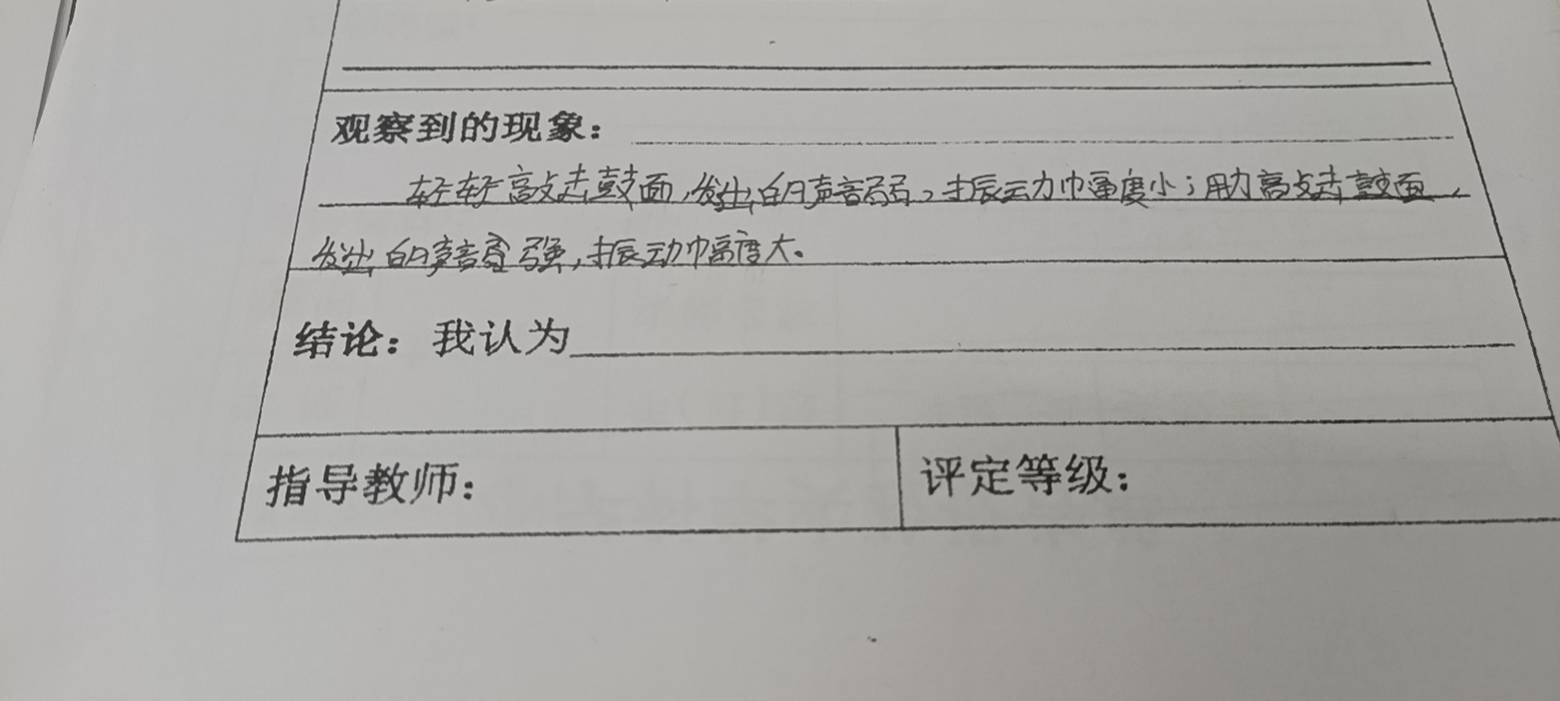 观察到的现象：
轻轻敲击鼓面，发出的声音弱，振动幅度小；用力敲击鼓面，
发出的声音强，振动幅度大。
结论：我认为
指导教师：
评定等级：